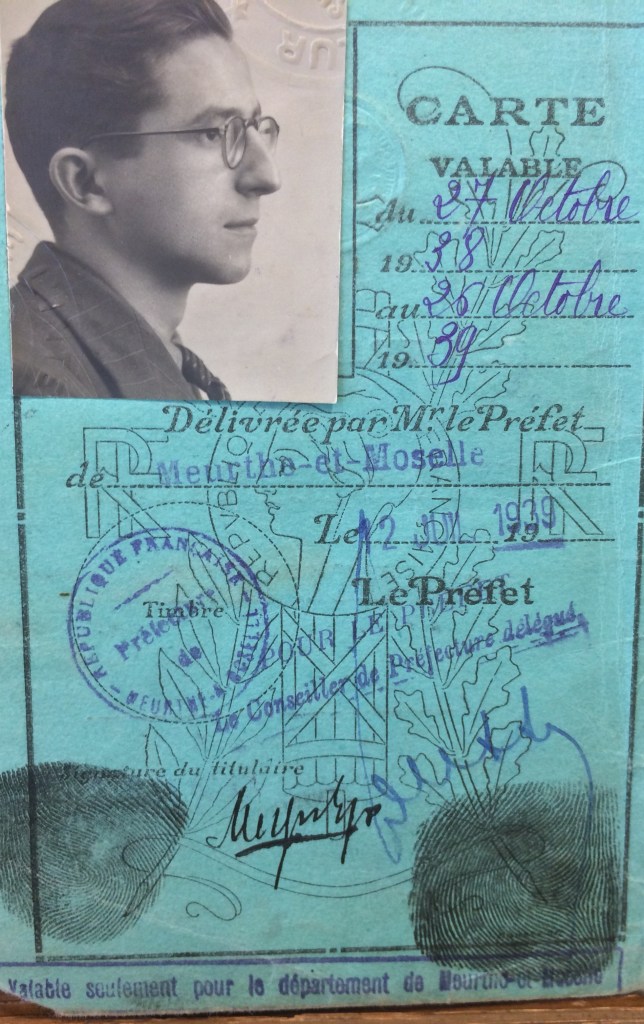 CARTE
VALABLE
du 27 Octobre
19 38
au 26 Octobre
19 39
Délivrée par Mr. le Préfet
de Meurthe-et-Moselle
Le 12 1939
Le Préfet
Timbre
RÉPUBLIQUE FRANÇAISE
Préfecture
de
MEURTHE & MOSELLE
POUR LE PRÉFET
Le Conseiller de Préfecture délégué,
Signature du titulaire
RF
RF
Valable seulement pour le département de Meurthe-et-Moselle